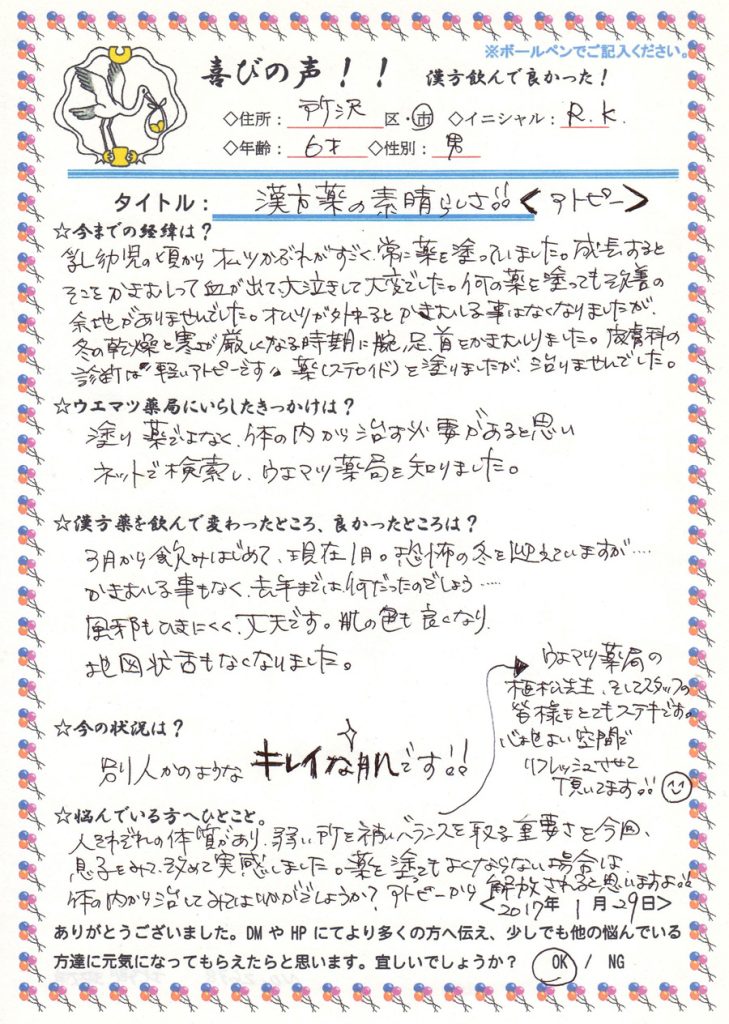 ※ボールペンでご記入ください。
喜びの声！！ 漢方飲んで良かった！
◇住所： 所沢 区・市 ◇イニシャル： R.K.
◇年齢： 6才 ◇性別： 男
タイトル： 漢方薬の素晴らしさ!! <アトピー>
☆今までの経緯は？
乳幼児の頃からオムツかぶれがすごく、常に薬を塗っていました。成長すると
そこをかきむしって血が出て、大泣きして大変でした。何の薬を塗っても改善の
余地がありませんでした。オムツが外れるとかきむしる事はなくなりましたが、
冬の乾燥と寒さが厳しくなる時期に腕、足、首をかきむしりました。皮膚科の
診断は"軽いアトピーです"薬(ステロイド)を塗りましたが、治りませんでした。
☆ウエマツ薬局にいらしたきっかけは？
塗り薬ではなく、体の内から治す必要があると思い
ネットで検索し、ウエマツ薬局を知りました。
☆漢方薬を飲んで変わったところ、良かったところは？
3月から飲みはじめて、現在1月。恐怖の冬を迎えていますが……
かきむしる事もなく、去年までは何だったのでしょう……
風邪もひきにくく、丈夫です。肌の色も良くなり、
地図状舌もなくなりました。
☆今の状況は？
別人かのような キレイな肌です!!
☆悩んでいる方へひとこと。
人それぞれの体質があり、弱い所を補いバランスを取る重要さを今回、
息子をみて、改めて実感しました。薬を塗ってもよくならない場合は、
体の内から治してみてはいかがでしょうか？アトピーから解放されると思いますよ!!
ウエマツ薬局の
植松先生、そしてスタッフの
皆様もとてもステキです。
心地よい空間で
リフレッシュさせて
頂いてます!!
<2017年 1月29日>
ありがとうございました。DMやHPにてより多くの方へ伝え、少しでも他の悩んでいる
方達に元気になってもらえたらと思います。宜しいでしょうか？ OK / NG